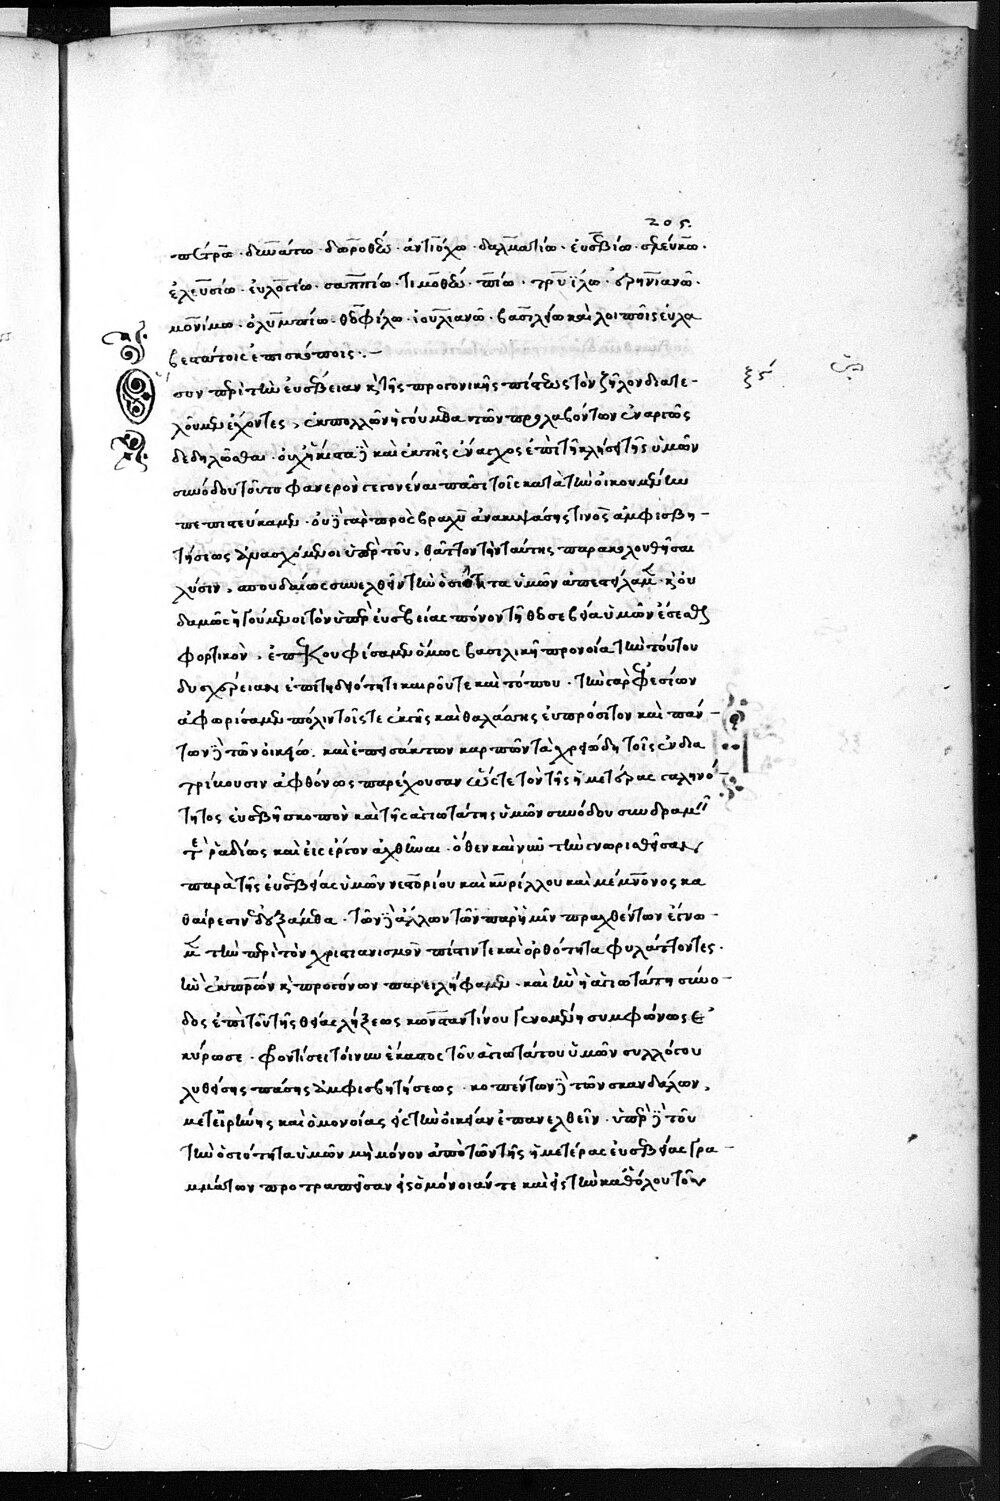 205
πέτρω · δωνάτω · δωροθέω · ἀντιόχω · δαλματίω · εὐσεβίω · σελεύκω ·
ἐλευσίω · εὐλογίω · σαππίω · τιμοθέω · πίω · τρωΐλω · εἰρηνιανῶ ·
μονίμω · ὀλυμπίω · θεοφίλω · ἰουλιανῶ · βασιλείω καὶ λοιποῖς εὐλα
βεστάτοις ἐπισκόποις :–
Ὅσην περὶ τὴν εὐσέβειαν κ τῆς προγονικῆς πίστεως τὸν ζῆλον διατε–
ξϛ
λοῦμεν ἔχοντες, ἐκ πολλῶν ἡγούμεθα τῶν προλαβόντων ἐναργῶς
δεδηλῶσθαι · οὐχ ἥκιστα δὲ καὶ ἐκ τῆς ἔναγχος ἐπὶ τῆ κλήσει τῆς ὑμῶν
συνόδου τοῦτο φανερὸν γεγονέναι πᾶσι τοῖς κατὰ τὴν οἰκουμένην
πεπιστεύκαμεν · οὐδὲ γὰρ πρὸς βραχὺ ἀνακυψάσης τινὸς ἀμφισβη–
τήσεως ἀνασχόμενοι ὑπὲρ τοῦ, θᾶττον τὴν ταύτης παρακολουθῆσαι
λύσιν, σπουδαίως συνελθεῖν τὴν ὁσιότητα ὑμῶν ἐπεστείλαμεν κ οὐ
δαμῶς ἡγούμενοι τὸν ὑπὲρ εὐσεβείας πόνον τῆ θεοσεβεία ὑμῶν ἔσεσθαι
φορτικὸν, ἐπεκουφίσαμεν ὅμως βασιλικῆ προνοία τὴν τούτου
δυσχέρειαν ἐπιτηδειότητι καιροῦ τε καὶ τόπου · τὴν γὰρ ἐφεσίων
ἀφωρίσαμεν πόλιν τοῖς τε ἐκ γῆς καὶ θαλάσσης εὐπρόσιτον καὶ πάν–
των δὲ τῶν οἰκείω. καὶ ἐπεισάκτων καρπῶν τὰ χρειώδη τοῖς ἐνδια
τρίβουσιν ἀφθόνως παρέχουσαν ὥστε τὸν τῆς ἡμετέρας γαληνό–
τητος εὐσεβῆ σκοπὸν καὶ τῆς ἁγιωτάτης ὑμῶν συνόδου συνδραμεῖν
τε ῥαδίως καὶ εἰς ἔργον ἀχθῆναι · ὅθεν καὶ νῦν τὴν γνωρισθεῖσαν
παρὰ τῆς εὐσεβείας ὑμῶν νεστορίου καὶ κυρίλλου καὶ μέμνονος κα
θαίρεσιν ἐδεξάμεθα · τῶν δὲ ἄλλων τῶν παρ' ἡμῖν πραχθέντων ἔγνω
μεν τὴν περὶ τὸν χριστιανισμὸν πίστιν τε καὶ ὀρθότητα φυλάττοντες ·
ἣν ἐκ πατέρων κ προγόνων παρειλήφαμεν · καὶ ἣν ἡ ἁγιωτάτη σύνο–
δος ἐπὶ τοῦ τῆς θείας λήξεως κωνσταντίνου γενομένη συμφώνως ἐ
κύρωσε · φροντίσει τοίνυν ἕκαστος τοῦ ἁγιωτάτου ὑμῶν συλλόγου
λυθείσης πάσης ἀμφισβητήσεως · κοπέντων δὲ τῶν σκανδάλων,
μετ' εἰρήνης καὶ ὁμονοίας εἰς τὴν οἰκείαν ἐπανελθεῖν · ὑπὲρ δὲ τοῦ
τὴν ὁσιότητα ὑμῶν μὴ μόνον ἀπὸ τῶν τῆς ἡμετέρας εὐσεβείας γρα–
μμάτων προτραπεῖσαν εἰς ὁμόνοιάν τε καὶ εἰς τὴν καθόλου τῶν